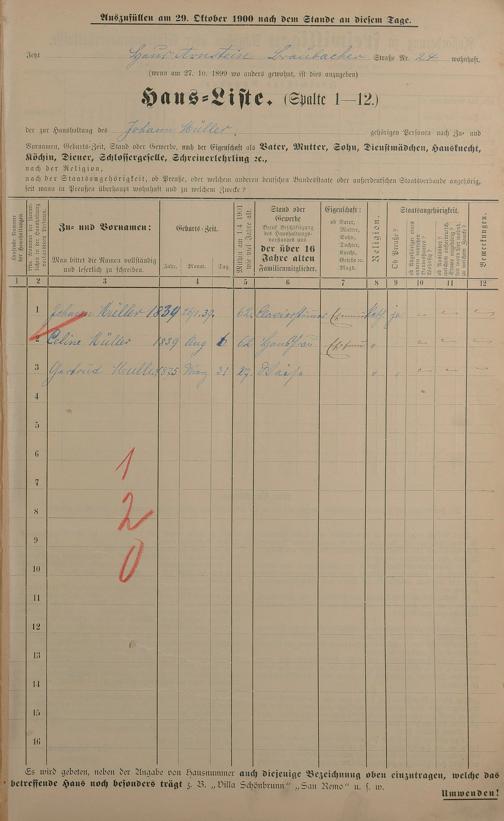 Auszufüllen am 29. Oktober 1900 nach dem Stande an diesem Tage.
Jetzt Haus Arnstein Braubacher Straße Nr. 24 wohnhaft.
(wenn am 27. 10. 1899 wo anders gewohnt, ist dies anzugeben)
Haus-Liste. (Spalte 1—12.)
der zur Haushaltung des Johann Müller. gehörigen Personen nach Zu- und
Vornamen, Geburts-Zeit, Stand oder Gewerbe, und der Eigenschaft als Vater, Mutter, Sohn, Dienstmädchen, Hausknecht,
Köchin, Diener, Schlossergeselle, Schreinerlehrling ꝛc.,
nach der Religion,
nach der Staatsangehörigkeit, ob Preuße, oder welchem anderen deutschen Bundesstaate oder außerdeutschen Staatsverbande angehörig,
seit wann in Preußen überhaupt wohnhaft und zu welchem Zwecke?
Zu- und Vornamen:
Man bittet die Namen vollständig und leserlich zu schreiben.
Geburts-Zeit.
Jahr. Monat. Tag.
Mithin am 1/4 1901 wie viel Jahre alt.
Stand oder Gewerbe
der über 16 Jahre alten Familienmitglieder.
Eigenschaft:
ob Vater, Mutter, Sohn, Tochter,
Magd.
Religion.
Staatsangehörigkeit.
Ob Preuße?
Bemerkungen.
1 2 3 4 5 6 7 8 9 10 11 12
1 Johann Müller 1839 62. ja
2 Celine Müller 1839 Aug 6 62 Hausfrau
3 Gertrud Müller 1875 März 31 27.
4
5
6
7
8
9
10
11
12
13
14
15
16
1
2
0
Es wird gebeten, neben der Angabe von Hausnummer auch diejenige Bezeichnung oben einzutragen, welche das
betreffende Haus noch besonders trägt z. B. „Villa Schönbrunn“ „San Remo“ u. s. w.
Umwenden!